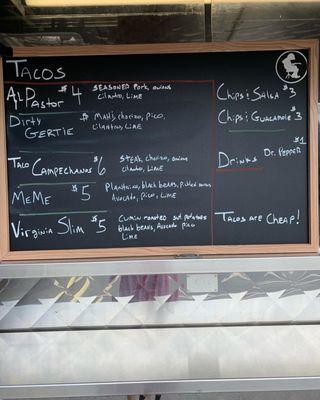 TACOS
Al Pastor $4 SEASONED Pork, onions
cilantro, Lime
Dirty GERTIE $ Mahi, chorizo, pico,
cilantro, Lime
Taco Campechanos $6 STEAK, chorizo, onions
cilantro, Lime
MeMe $5 Plantains, black beans, pickled onions
Avocado, pico, Lime
Virginia Slim $5 Cumin roasted swt potatoes
black beans, Avocado pico
Lime
Chips & Salsa $3
Chips & Guacamole $3
Drinks Dr. Pepper $1
Tacos are Cheap!